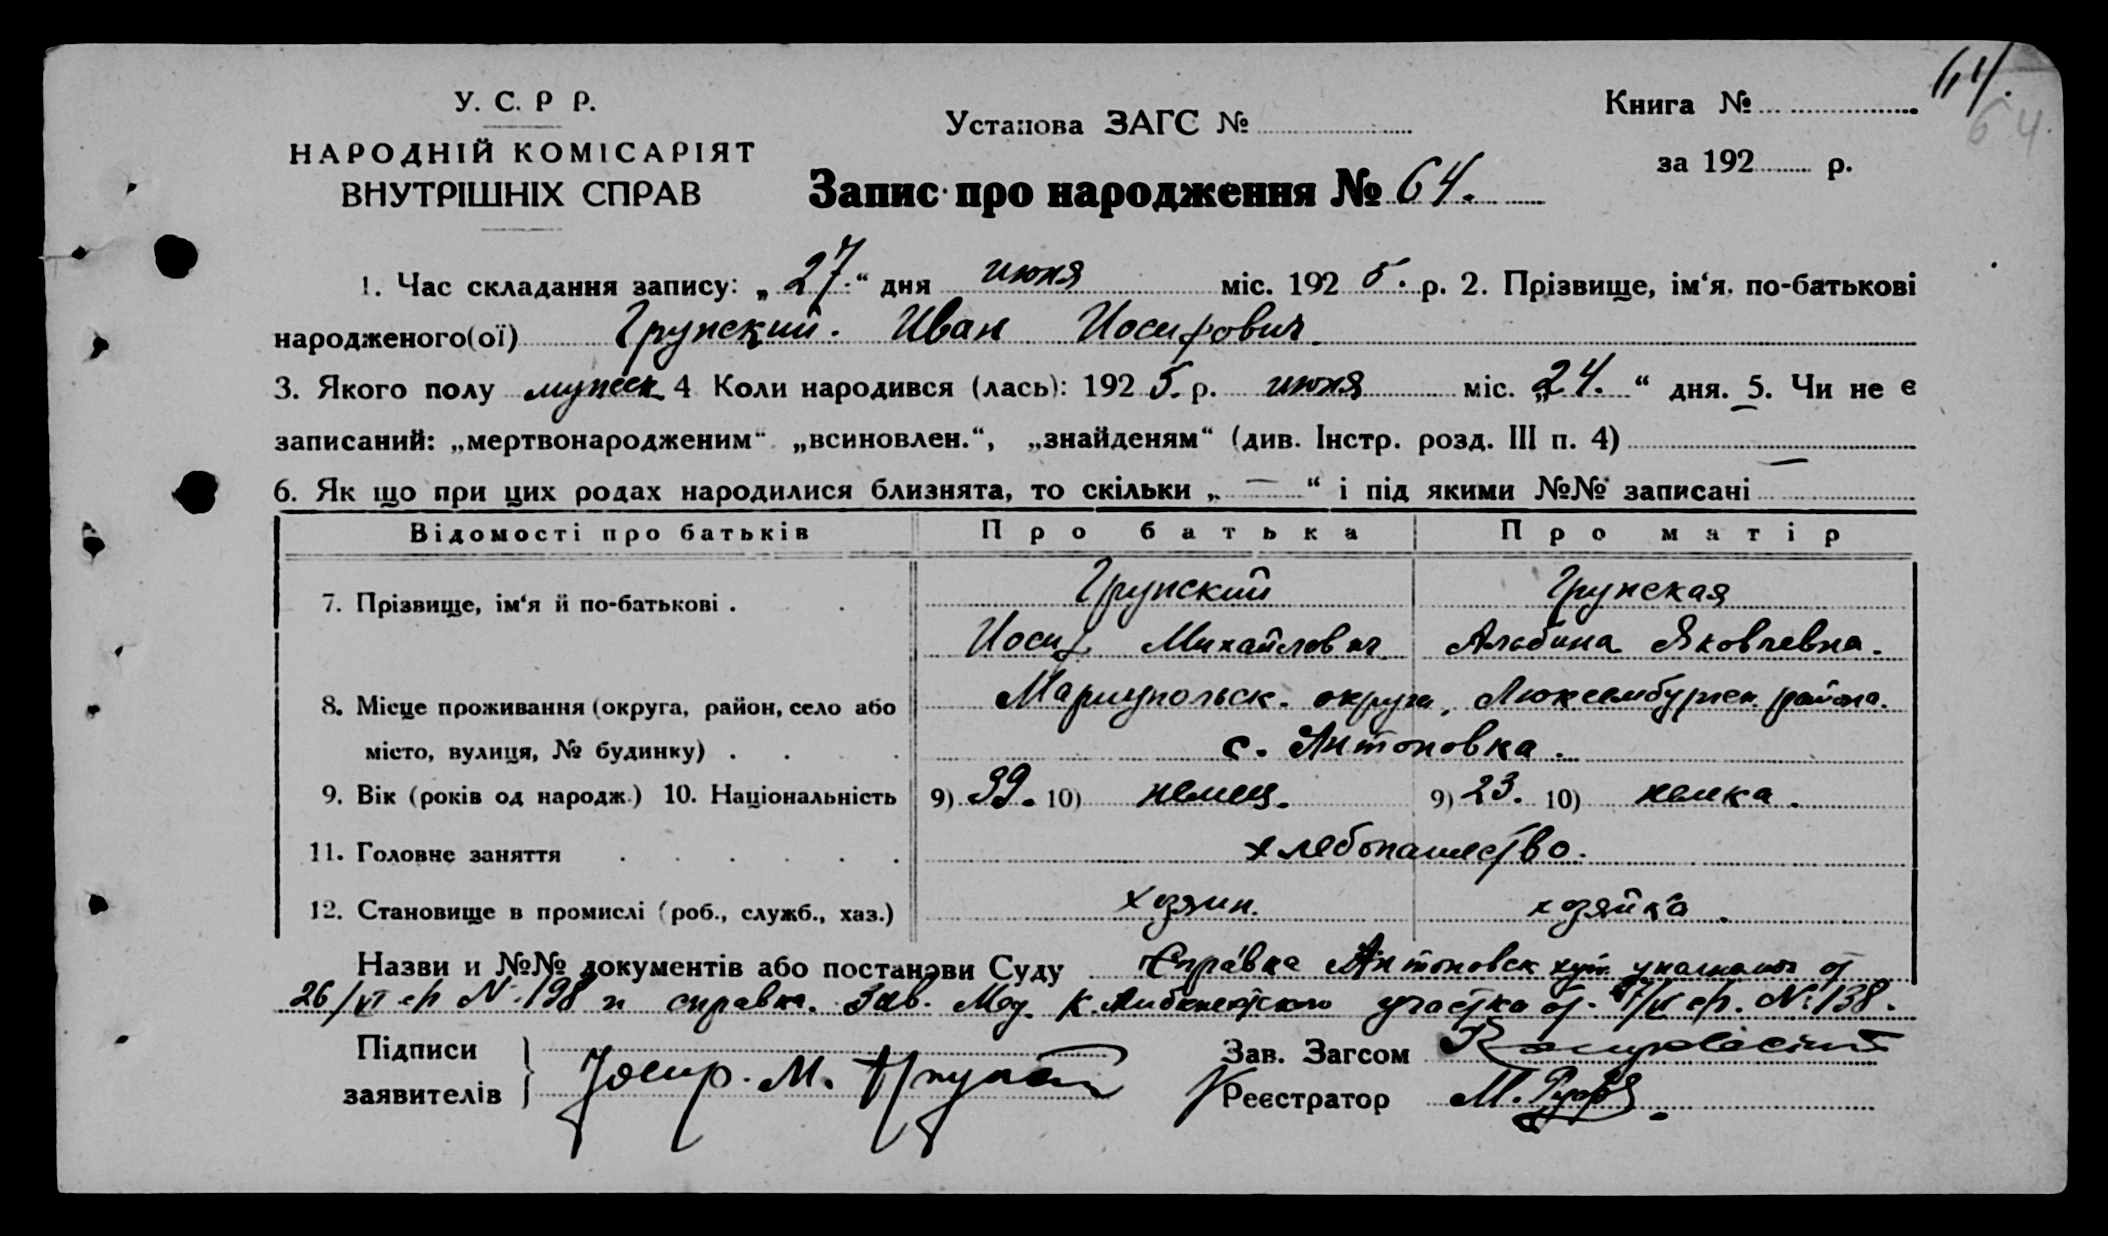 64.
64.
У. С. Р Р.
НАРОДНІЙ КОМІСАРІЯТ
ВНУТРІШНІХ СПРАВ
Установа ЗАГС №
Книга №
за 192 р.
Запис про народження № 64.
1. Час складання запису: „27.“ дня июня міс. 1925. р. 2. Прізвище, ім‘я, по-батькові
народженого(ої) Грунский. Иван Иосифович.
3. Якого полу мужеск 4 Коли народився (лась): 1925. р. июня міс. „24.“ дня. 5. Чи не є
записаний: „мертвонародженим“ „всиновлен.“, „знайденям“ (див. Інстр. розд. III п. 4) —
6. Як що при цих родах народилися близнята, то скільки „ — “ і під якими №№ записані —
Відомості про батьків Про батька Про матір
7. Прізвище, ім‘я й по-батькові . Грунский Грунская
Иосиф Михайлович Альбина Яковлевна.
8. Місце проживання (округа, район, село або Мариупольск. округа, Люксембургск. района.
місто, вулиця, № будинку) . с. Антоновка.
9. Вік (років од народж.) 10. Національність 9) 39. 10) немец. 9) 23. 10) немка.
11. Головне заняття хлебопашество.
12. Становище в промислі (роб., служб., хаз.) хозяин. хозяйка.
Назви и №№ документів або постанови Суду Справка Антоновск от
26/VI с/г № 198 и справка Зав. Мед. участка от с/г. № 138.
Підписи Зав. Загсом
заявителів Иосиф. М. Реєстратор М.